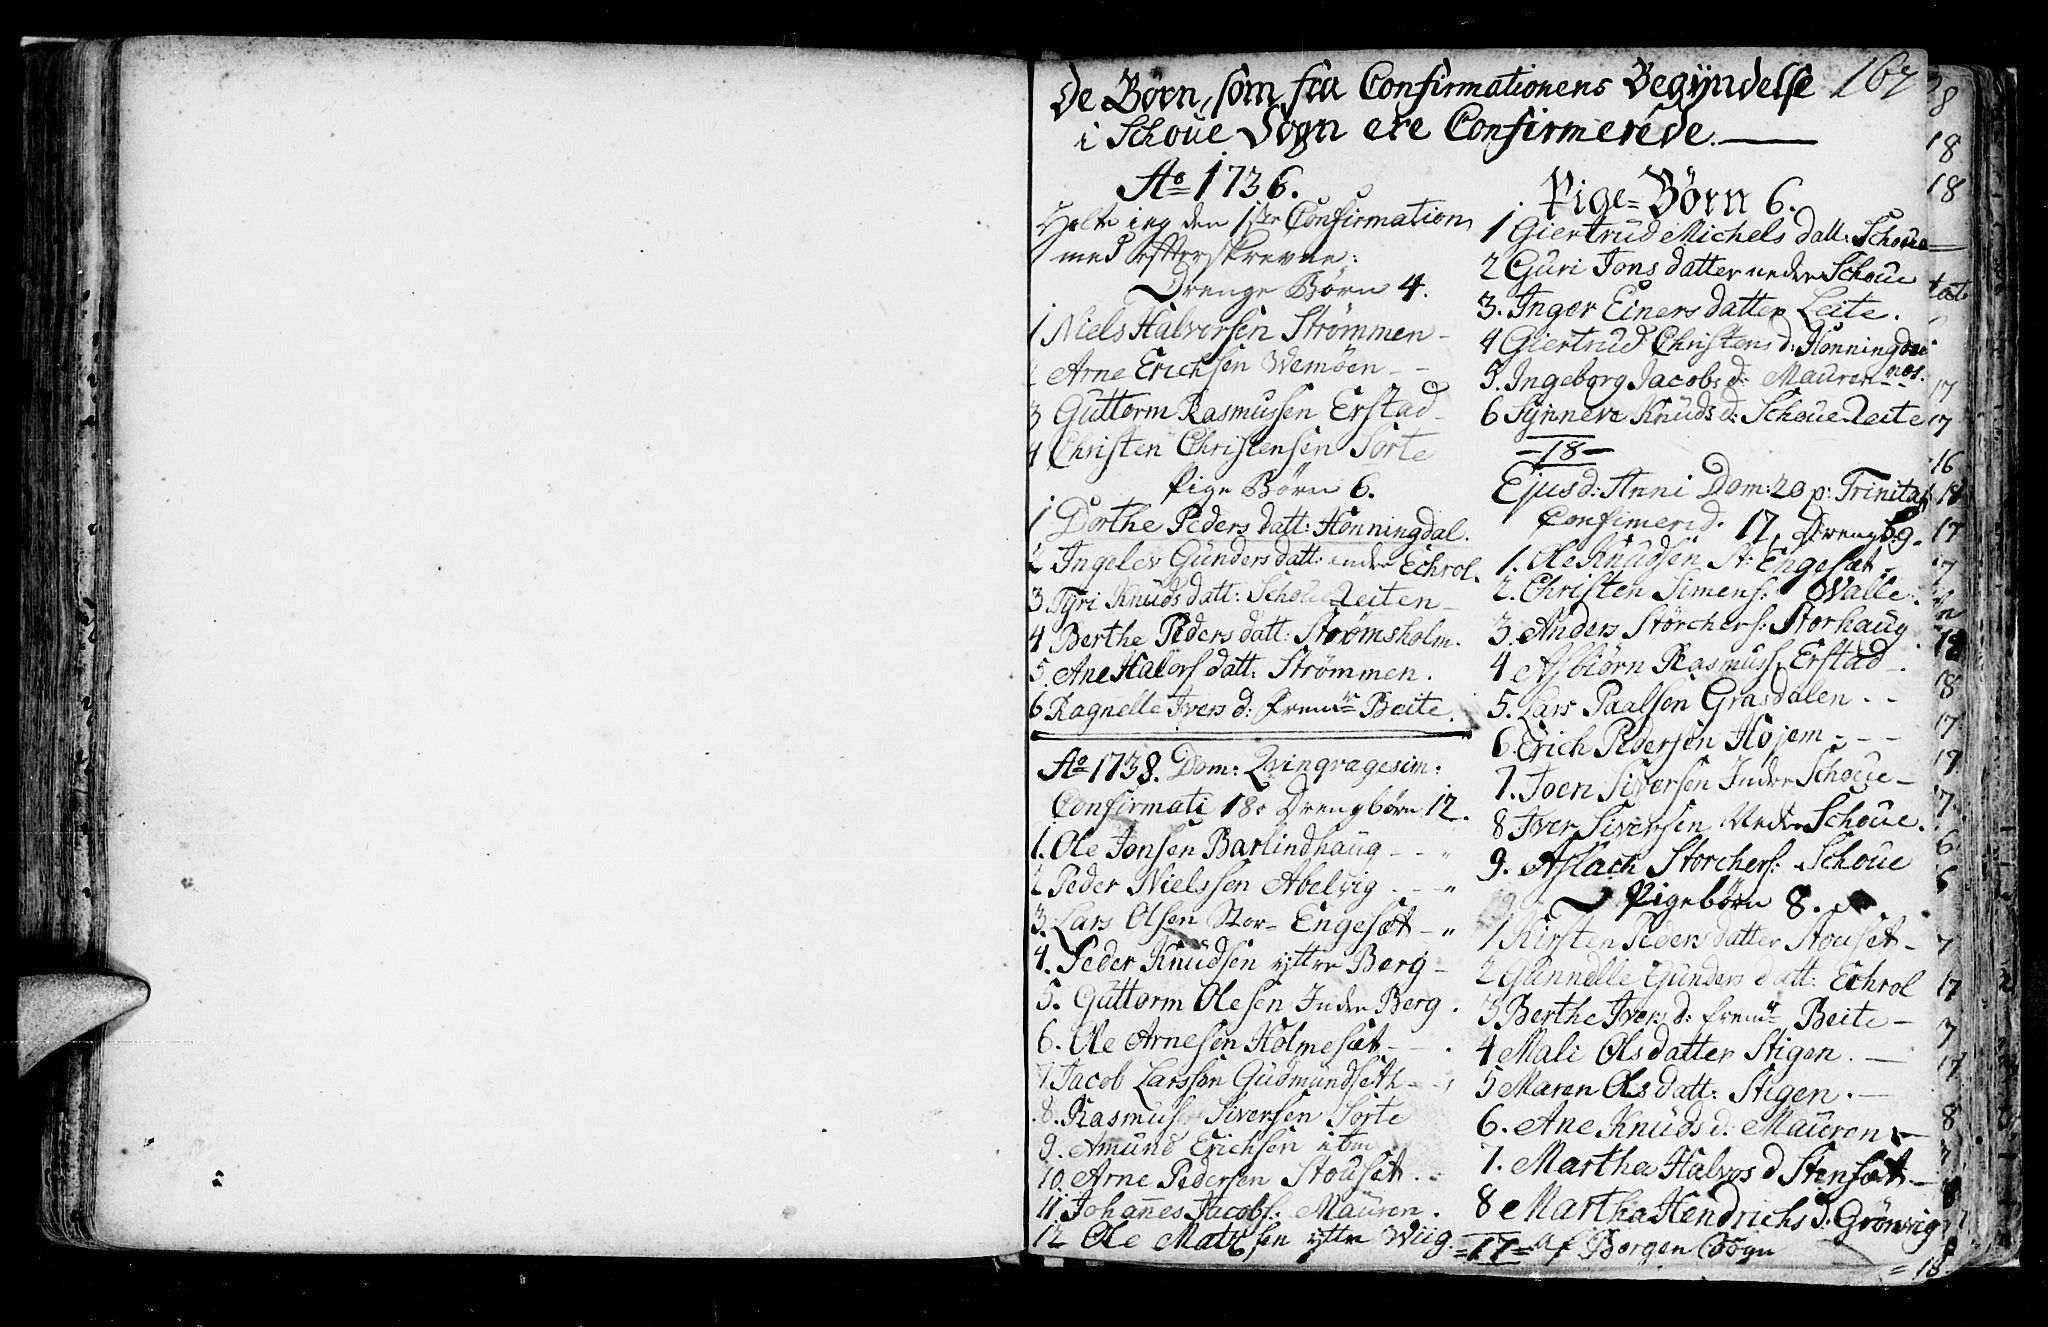 De Børn, som fra Confirmationens Begÿndelse 167
i Schoue Sogn ere Confirmerede.
Ao 1736.
Holte ieg den 1ste Confirmation
med effterskrevne:
Drenge Børn 4.
1 Niels Halvorsen Strømmen
2 Arne Erichsen Wemøen
3 Guttorm Rasmussen Erstad
4 Christen Christensen Sorte
Pige Børn 6.
1 Dorthe Peders datt: Honningdal.
2 Ingelev Gunders datt: Echrol.
3. Tyri Knuds datt: Schoue Leiten
4 Berthe Peders datt: Strømsholm.
5. Ane Halvors datt: Strømmen.
6 Ragnelle Ivers d: fremre Beite.
Ao 1738. Dom: Qvinqvagesim:
Confirmati 18. Drengbørn 12.
1. Ole Jonsen Barlindhaug
2 Peder Nielssen Abelvig
3. Lars Olsen Stor- Engesæt
4. Peder Knudsen yttre Berg
5. Guttorm Olesen Indre Berg.
6. Ole Arnesen Holmesæt
7 Jacob Larssen Gudmundseth
8. Rasmus Siversen Sorte
9. Amund Erichsen item
10. Arne Pedersen Stouset.
11 Johannes Jacobs: Mauren.
12 Ole Matssen yttre Wiig.
Pige-Børn 6.
1 Giertrud Michels datt: Schoue
2 Guri Jons datter nedre Schoue
3. Inger Einers datter Leite.
4 Giertrud Christens d: Honningdal
5. Ingeborg Jacobs d: Mauren
6 Synneve Knuds d: Schoue Leite
-18-
Ejusd: Anni Dom: 20 p: Trinitat
Confimerid. 17, Drengb: 9.
1. Ole Knudsen St: Engesæt
2. Christen Simens: Walle
3. Anders Störchers: Storhaug
4 Asbiørn Rasmuss: Erstad
5. Lars Paalsen Grasdalen
6. Erich Pedersen Højem
7. Joen Siversen Indre Schoue
8 Iver Siversen Nedre Schoue.
9. Aslach Storchers: Schoue
Pigebørn 8.
1 Kirsten Peders datter Stouset
2 Gunnelle Gunders datt: Echrol
3 Berthe Ivers d: fremre Beite
4 Mali Ols datter Stigen.
5 Maren Ols datt: Stigen.
6. Ane Knuds d: Mauren
7. Martha Halvos d Stensæt
8 Martha Hendrichs d: Grønvig
=17= af Borgen Sogn